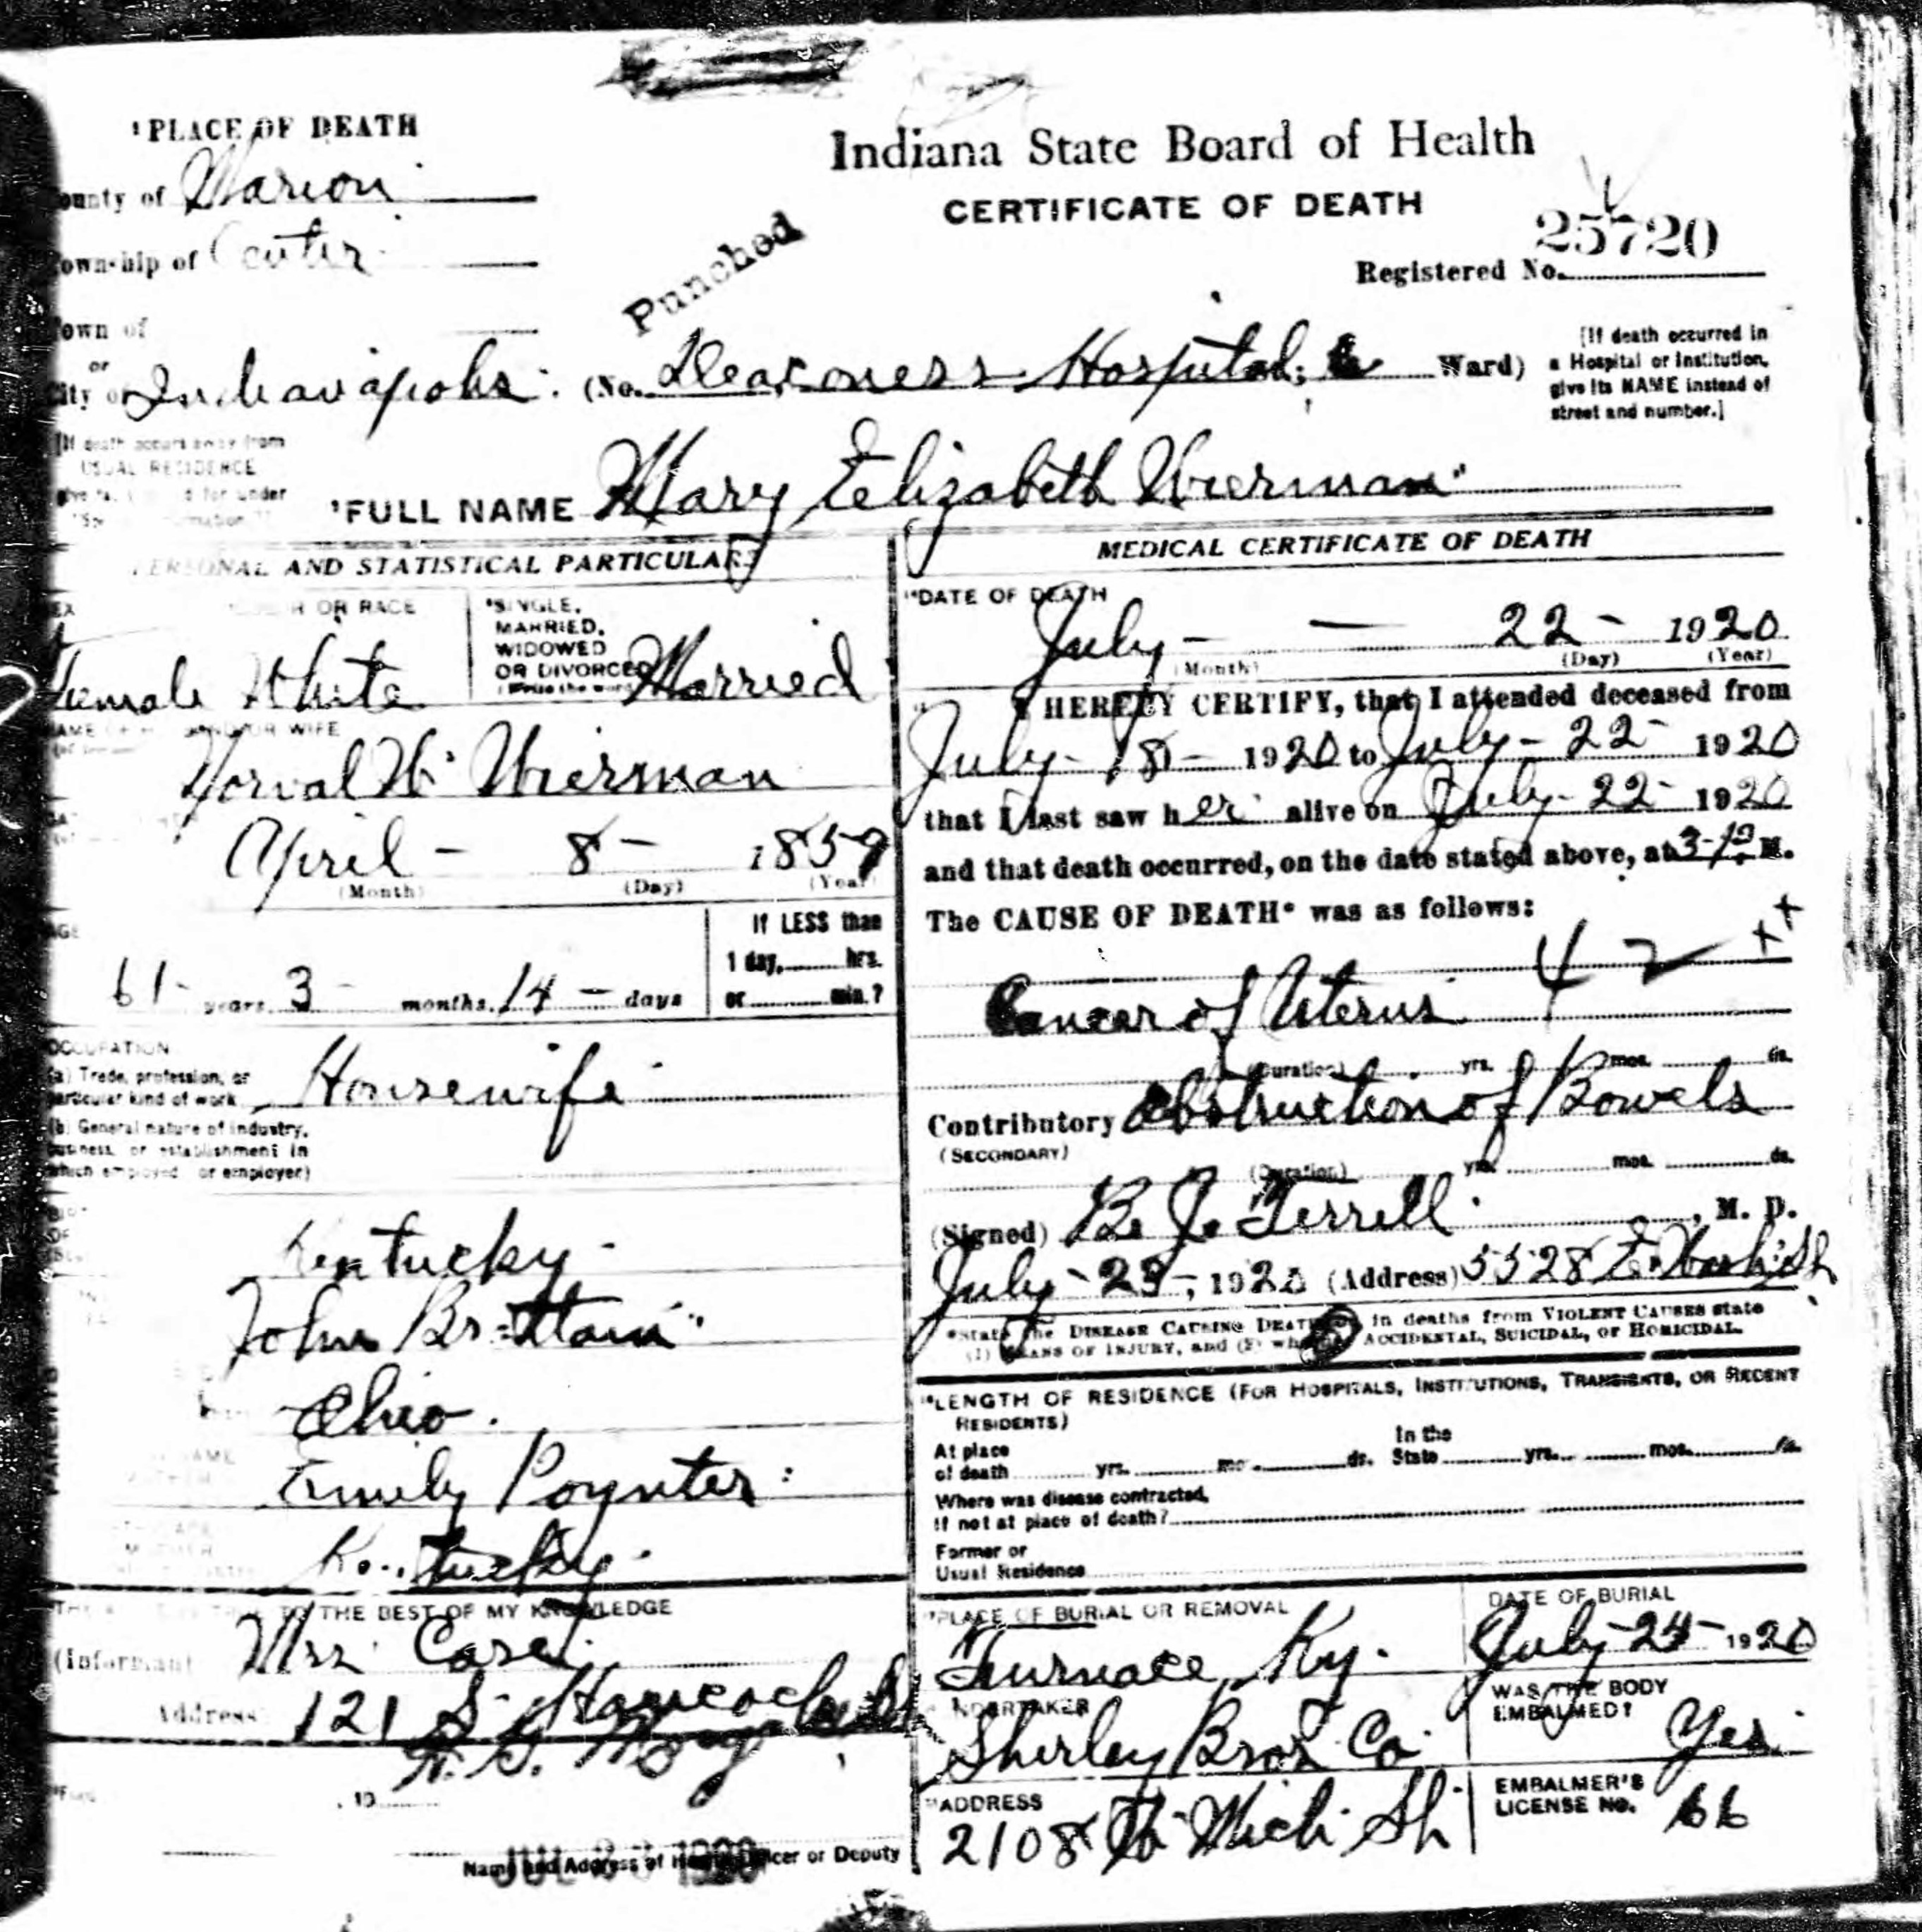 PLACE OF DEATH
County of Marion
Township of Center
Town of
or
City of Indianapolis
Indiana State Board of Health
CERTIFICATE OF DEATH
Punched
25720
Registered No.
(No. Deaconess Hospital; Ward)
[If death occurred in
a Hospital or Institution,
give its NAME instead of
street and number.]
[If death occurs away from
USUAL RESIDENCE
FULL NAME Mary Elizabeth Wierman
PERSONAL AND STATISTICAL PARTICULARS
OR RACE
SINGLE,
MARRIED,
WIDOWED
OR DIVORCED
(Write the word)
Female White Married
OR WIFE
Norval W. Wierman
April - 8 - 1859
(Month) (Day) (Year)
AGE
61 - years 3 - months 14 - days
If LESS than
1 day, hrs.
or min.?
OCCUPATION
(a) Trade, profession, or
particular kind of work Housewife
(b) General nature of industry,
business, or establishment in
which employed (or employer)
Kentucky -
John Brittain
Ohio.
Emily Poynter
Kentucky
PARENTS
TO THE BEST OF MY KNOWLEDGE
(Informant Mrs. Case
Address 121 S. Hancock St
, 19
JUL 1920
Name and Address of Health Officer or Deputy
MEDICAL CERTIFICATE OF DEATH
DATE OF DEATH
July - - 22 - 1920
(Month) (Day) (Year)
I HEREBY CERTIFY, that I attended deceased from
July - 18 - 1920 to July - 22 - 1920
that I last saw her alive on July - 22 - 1920
and that death occurred, on the date stated above, at 3-10 M.
The CAUSE OF DEATH* was as follows:
42 ++
Cancer of Uterus
(Duration) yrs. mos. ds.
Contributory Obstruction of Bowels
(SECONDARY)
(Duration) yrs. mos. ds.
(Signed) B. J. Terrell, M. D.
July - 23 -, 1920 (Address) 5528 E. Wash. St
*State the DISEASE CAUSING DEATH, or, in deaths from VIOLENT CAUSES state
(1) MEANS OF INJURY, and (2) whether ACCIDENTAL, SUICIDAL, or HOMICIDAL.
LENGTH OF RESIDENCE (FOR HOSPITALS, INSTITUTIONS, TRANSIENTS, OR RECENT
RESIDENTS)
At place
of death yrs. mos. ds.
In the
State yrs. mos. ds.
Where was disease contracted,
if not at place of death?
Former or
Usual Residence
PLACE OF BURIAL OR REMOVAL
Furnace Ky.
DATE OF BURIAL
July 24 - 1920
UNDERTAKER
Shirley Bros Co
WAS THE BODY
EMBALMED? Yes
ADDRESS
2108 W. Mich. St
EMBALMER'S
LICENSE NO. 66